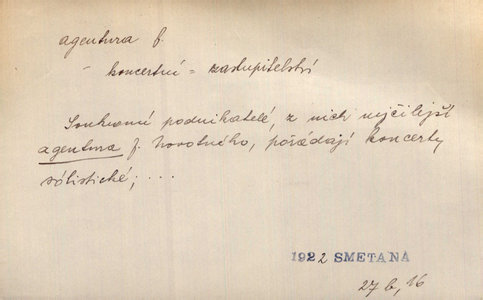 agentura f.
- koncertní = zastupitelství
Soukromí podnikatelé, z nich nejčilejší
agentura f. Novotného, pořádají koncerty
sólistické; ...
1922 SMETANA
27 b, 16